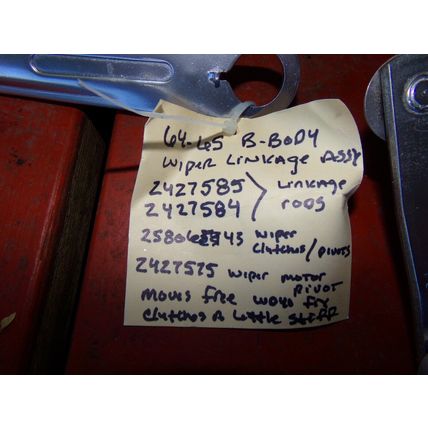 64-65 B-BODY
WIPER LINKAGE ASSY
2427585 LINKAGE
2427584 RODS
43 WIPER
Clutches/PIVOTS
2427575 WIPER MOTOR
PIVOT
MOVES FREE
Clutches A Little STIFF